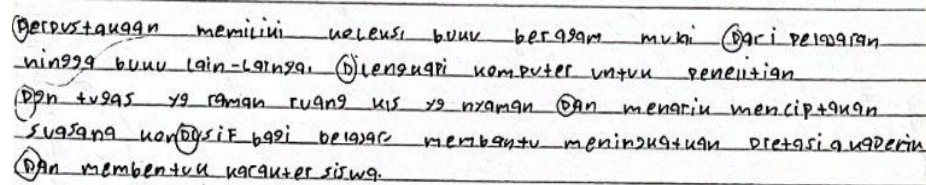 Perpustakaan memiliki koleksi buku beragam mulai Dari pelajaran
hingga buku lain-lainya. Dilengkapi komputer untuk penelitian
Dan tugas yg raman ruang kls yg nyaman DAn menarik menciptakan
suasana konDusif bagi belajar membantu meningkatkan pretasi akaDerik
DAn membentuk karakter siswa.